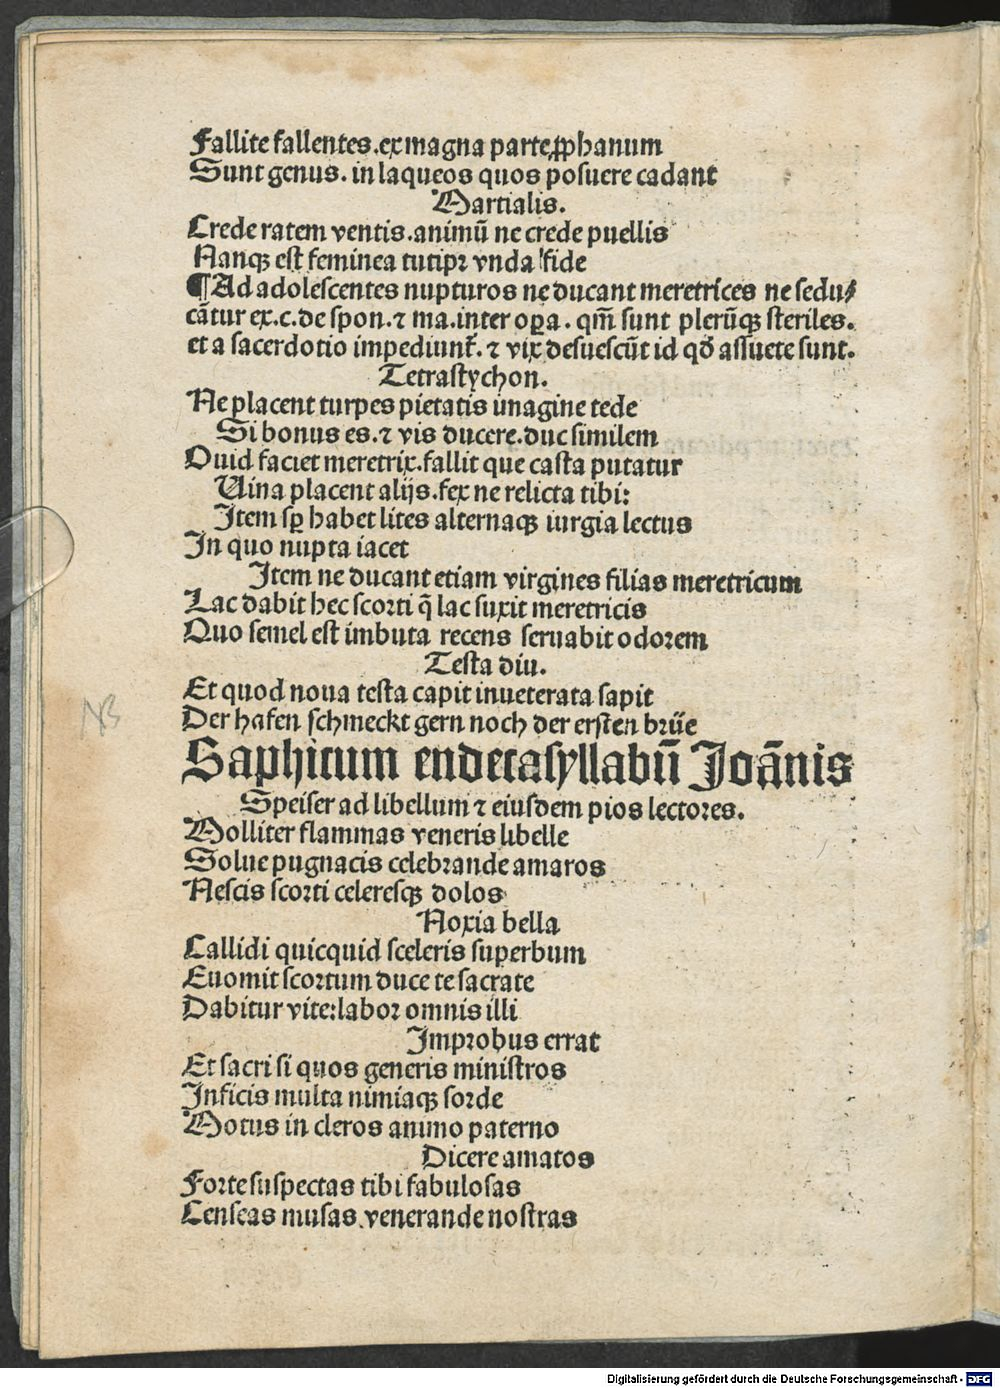 Fallite fallentes.ex magna parte ꝓphanum
Sunt genus. in laqueos quos posuere cadant
Martialis.
Crede ratem ventis.animū ne crede puellis
Nanqꝫ est feminea tutipꝛ vnda fide
¶Ad adolescentes nupturos ne ducant meretrices ne sedu/
cātur ex.c.de spon.⁊ ma.inter oꝑa. qm̄ sunt plerūqꝫ steriles.
et a sacerdotio impediunt᷑. ⁊ vix desuescūt id qđ assuete sunt.
Tetrastychon.
Ne placent turpes pietatis imagine tede
Si bonus es.⁊ vis ducere.duc similem
Quid faciet meretrix.fallit que casta putatur
Uina placent alijs.fex ne relicta tibi:
Item sꝑ habet lites alternaqꝫ iurgia lectus
In quo nupta iacet
Item ne ducant etiam virgines filias meretricum
Lac dabit hec scorti q̄ lac suxit meretricis
Quo semel est imbuta recens seruabit odorem
Testa diu.
Et quod noua testa capit inueterata sapit
Der hafen schmeckt gern noch der ersten brüe
Saphicum endecasyllabū Joānis
Speiser ad libellum ⁊ eiusdem pios lectores.
Molliter flammas veneris libelle
Solue pugnacis celebrande amaros
Nescis scorti celeresqꝫ dolos
Noxia bella
Callidi quicquid sceleris superbum
Euomit scortum duce te sacrate
Dabitur vite:labor omnis illi
Improbus errat
Et sacri si quos generis ministros
Inficis multa nimiaqꝫ sorde
Motus in cleros animo paterno
Dicere amatos
Forte suspectas tibi fabulosas
Censeas musas.venerande nostras
NB
Digitalisierung gefördert durch die Deutsche Forschungsgemeinschaft - DFG